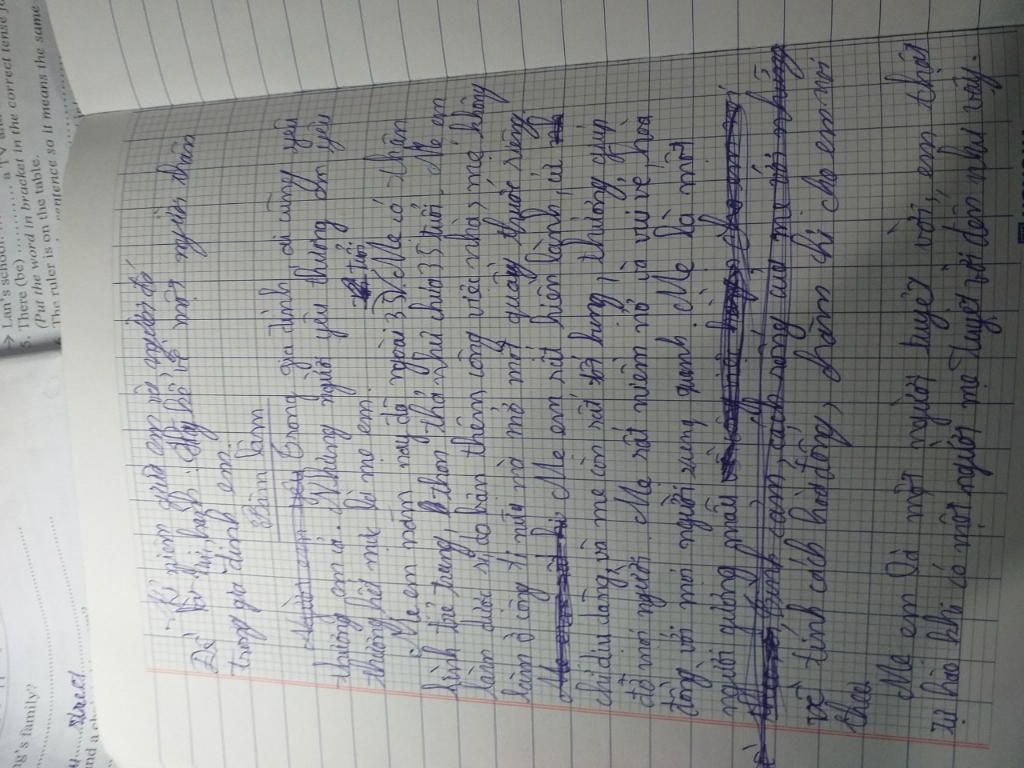 Lan's school
There (be) .......... a TV and
5. (Put the word in bracket in the correct tense
The ruler is on the table.
sentence so it means the same
ng's family?
and a
kỉ niệm giữa em và người đó
Đề bài: Hãy kể về một người thân
trong gia đình em.
Bài làm
Trong gia đình ai cũng yêu
thương em cả. Nhưng người yêu thương em yêu
thương hết mực là mẹ em.
Mẹ em năm nay đã ngoài 35 tuổi. Mẹ có thân
hình trẻ trung, thon thả như chưa 35 tuổi. Mẹ em
làm dược sĩ, do bán thêm công việc nhà, mẹ không
làm ở công ti nữa mà mở một quầy thuốc riêng
Mẹ em rất hiền lành, cử
chỉ dịu dàng, và mẹ còn rất tốt bụng, thường giúp
đỡ mọi người. Mẹ rất niềm nở và vui vẻ, hòa
đồng với mọi người xung quanh. Mẹ là một
người gương mẫu
tình cảm, cách sống của mẹ với những
về tính cách hoạt động, phẩm chị cho em noi
theo.
Mẹ em là một người tuyệt vời, em thật
tự hào khi có một người mẹ tuyệt vời đến như vậy.